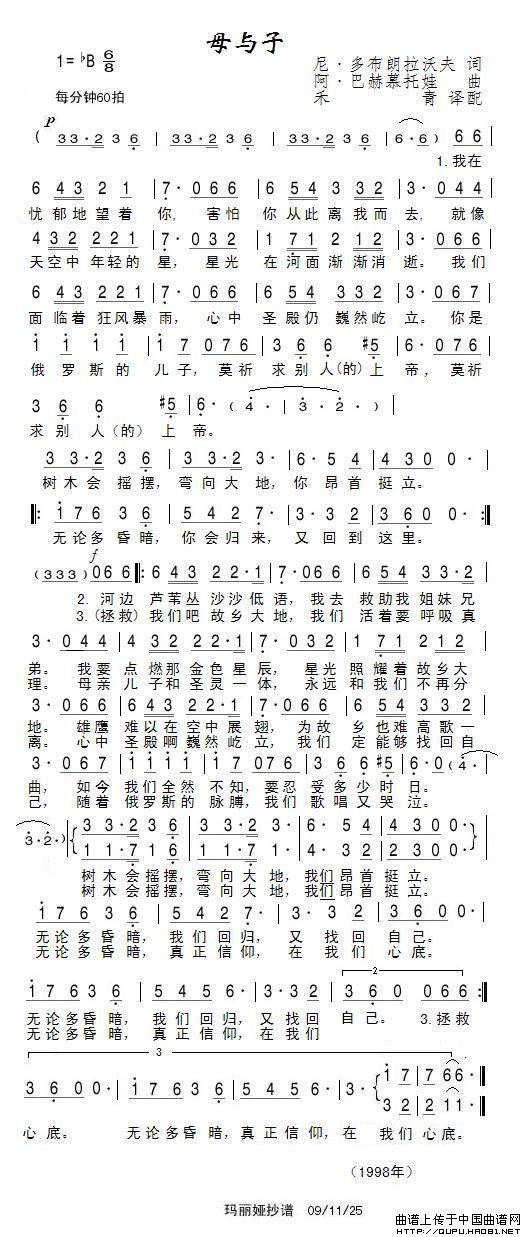 母与子
1=♭B 6/8
尼·多布朗拉沃夫 词
阿·巴赫慕托娃 曲
禾 青 译配
每分钟60拍
p
( 33·2 3 6 | 33·2 3 6 | 33·2 3 6 | 6·6· ) 6 6
1.我在
6 4 3 2 1 | 7· 0 6 6 | 6 5 4 3 3 2 | 3· 0 4 4 |
忧郁地望着 你, 害怕 你从此离我而 去, 就像
4 3 2 2 2 1 | 7· 0 3 2 | 1 7 1 2 1 2 | 3· 0 6 6 |
天空中 年轻的 星, 星光 在河面 渐渐消 逝。 我们
6 4 3 2 2 1 | 7· 0 6 6 | 6 5 4 3 3 2 | 3· 0 6 7 |
面临着 狂风暴 雨, 心中 圣殿仍 巍然屹 立。 你是
1 1 1 1 | 1 0 7 6 | 3 6 6 #5 | 6· 0 7 6 |
俄罗斯的 儿子, 莫祈 求别人(的)上 帝, 莫祈
3 6 6 #5 | 6· ( 4· | 3· 2· ) |
求别 人(的) 上 帝。
3 3·2 3 6 | 3 3·2 3· | 6· 5 4 | 4 3 0 0· |
树木会 摇摆, 弯向大 地, 你 昂首 挺立。
1 7 6 3 6 | 5 4 2 7 | 3· 3 2 | 3 6 0 0·
无论多 昏暗, 你会 归来, 又 回到 这里。
f
(3 3 3) 0 6 6 6 4 3 2 2·1 | 7· 0 6 6 | 6 5 4 3 3·2 |
2. 河边 芦苇丛 沙沙低 语, 我去 救助我 姐妹兄
3.(拯救)我们吧 故乡大 地, 我们 活着要 呼吸真
3· 0 4 4 | 4 3 2 2 2·1 | 7· 0 3 2 | 1 7 1 2 1 2 |
弟。 我要 点燃那 金色星 辰, 星光 照耀着 故乡大
理。 母亲 儿子和 圣灵一 体, 永远 和我们 不再分
3· 0 6 6 | 6 4 3 2 2·1 | 7· 0 6 6 | 6 5 4 3 3 2 |
地。 雄鹰 难以在 空中展 翅, 为故 乡也难 高歌一
离。 心中 圣殿啊 巍然屹 立, 我们 定能够 找回自
3· 0 6 7 | 1 1 1 1 | 1 0 7 6 | 3 6 6 #5 | 6· 0 ( 4·
曲, 如今 我们全然 不知, 要忍 受多少时 日。
己, 随着 俄罗斯的 脉膊, 我们 歌唱又哭 泣。
3·2· ) 3 3·2 3 6 | 3 3·2 3· | 6· 5 4 | 4 3 0 0·
1 1·7 6 | 1 1·7 1· | 4· 3 2 | 2 1 0 0·
树木会摇摆, 弯向大 地, 我们 昂首 挺立。
树木会摇摆, 弯向大 地, 我们 昂首 挺立。
1 7 6 3 6 | 5 4 2 7 | 3· 3 2 | 3 6 0 0· |
无论多昏暗, 我们回归, 又 找回 自己。
无论多昏暗, 真正信仰, 在 我们 心底。
2
1 7 6 3 6 | 5 4 5 6· | 3· 3 2 | 3 6 0 0 6 6
无论多昏暗, 我们回归, 又找回 自己。 3.拯救
无论多昏暗, 真正信仰, 在 我们
3
3 6 0 0· | 1 7 6 3 6 | 5 4 5 6 | 3· 1 7 | 7 6 6·
3 2 | 2 1 1·
心底。 无论多昏暗, 真正信仰, 在 我们 心底。
(1998年)
玛丽娅抄谱 09/11/25
曲谱上传于中国曲谱网
HTTP://QUPU.HAO81.NET